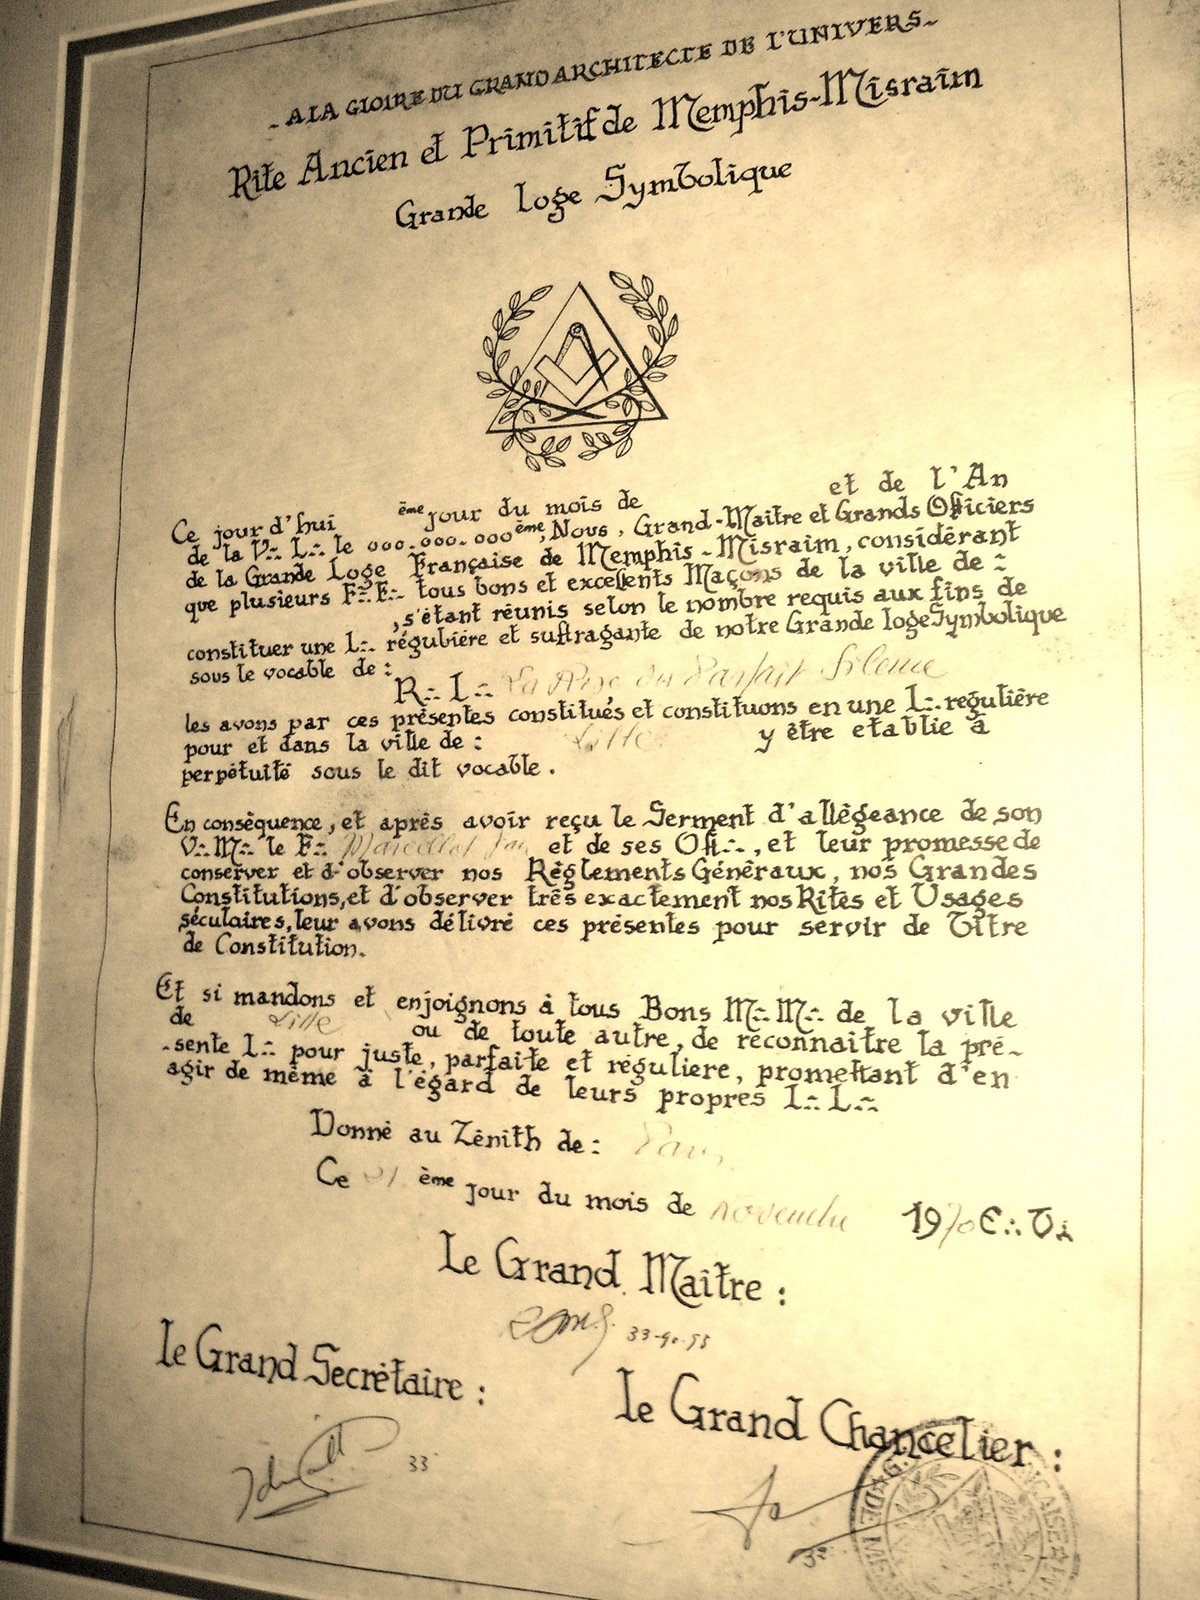 - A LA GLOIRE DU GRAND ARCHITECTE DE L'UNIVERS -
Rite Ancien et Primitif de Memphis-Misraim
Grande Loge Symbolique
Ce jour d'hui ème jour du mois de et de l'An
de la V∴ L∴ le 000.000.000ème, Nous, Grand-Maitre et Grands Officiers
de la Grande Loge Française de Memphis-Misraim, considérant
que plusieurs F∴F∴ tous bons et excellents Maçons de la ville de :
, s'étant réunis selon le nombre requis aux fins de
constituer une L∴ régulière et suffragante de notre Grande Loge Symbolique
sous le vocable de :
R∴ L∴ La Rose du Parfait Silence
les avons par ces présentes constitués et constituons en une L∴ regulière
pour et dans la ville de : Lille y être etablie à
perpétuité sous le dit vocable.
En conséquence, et après avoir reçu le Serment d'allégeance de son
V∴M∴ le F∴ et de ses Off∴, et leur promesse de
conserver et d'observer nos Règlements Généraux, nos Grandes
Constitutions, et d'observer très exactement nos Rites et Usages
séculaires, leur avons délivré ces présentes pour servir de Titre
de Constitution.
Et si mandons et enjoignons à tous Bons M∴M∴ de la ville
de Lille ou de toute autre, de reconnaitre la pré-
-sente L∴ pour juste, parfaite et régulière, promettant d'en
agir de même à l'égard de leurs propres L∴L∴
Donné au Zénith de : Paris
Ce ème jour du mois de novembre 1970 E∴ V∴
Le Grand Maitre :
33-90-95
Le Grand Secrétaire :
33
Le Grand Chancelier :